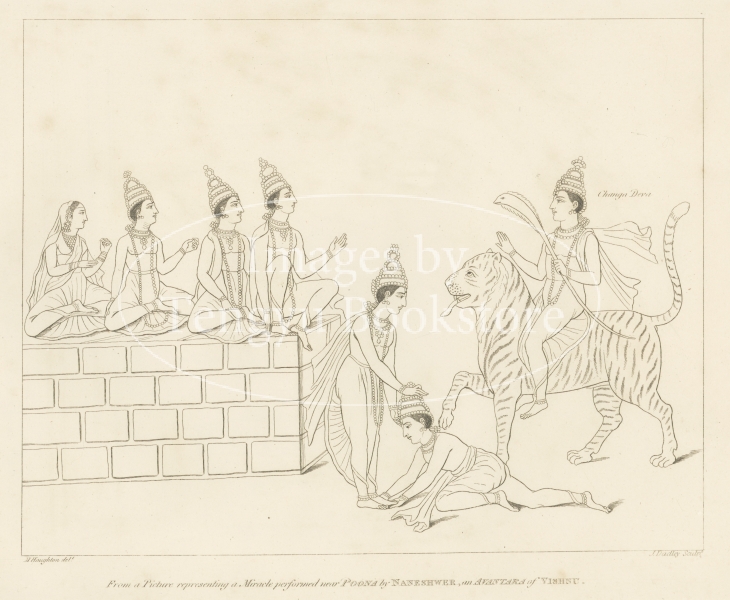 Changa Deva
Images by
Tengyu Bookstore
Houghton delt.
J. Dadley Sculpt.
From a Picture representing a Miracle performed near POONA by NANESHWER, an AVANTARA of VISHNU.